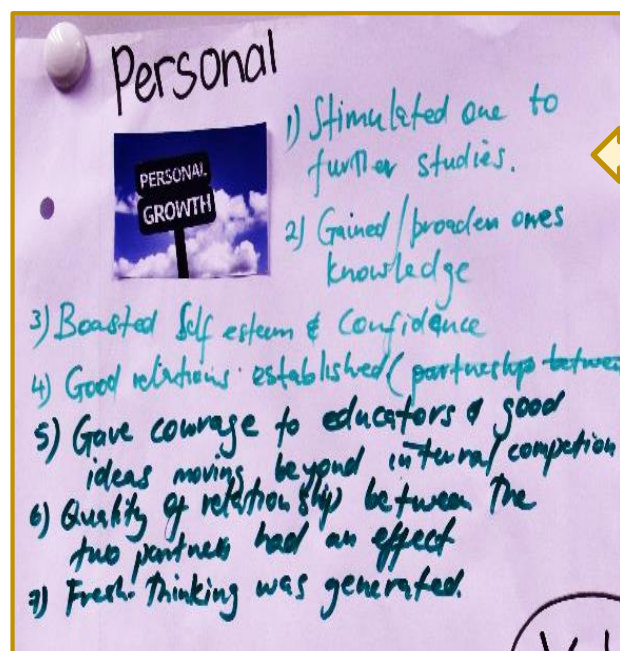 Personal
PERSONAL
GROWTH
1) Stimulated one to
further studies.
2) Gained/broaden ones
knowledge
3) Boasted Self esteem & Confidence
4) Good relations established (partneship between
5) Gave courage to educators & good
ideas moving beyond internal competion
6) Quality of relationship between the
two partners had an effect
7) Fresh thinking was generated.